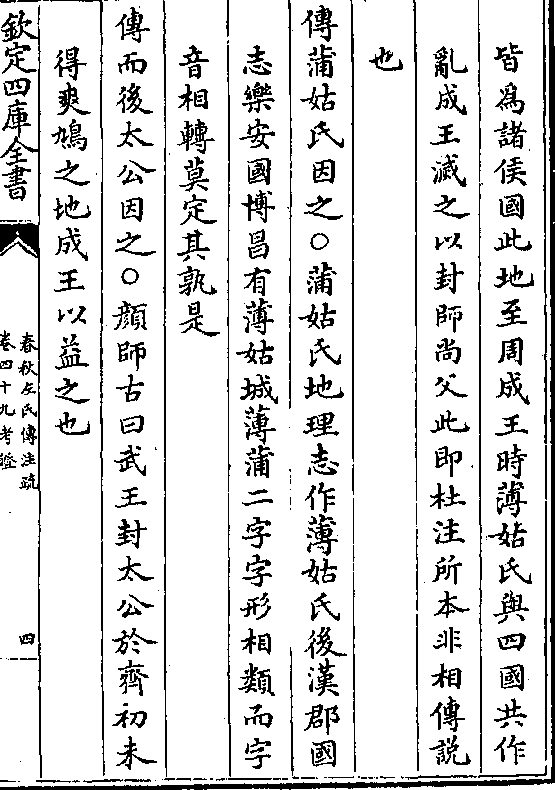 皆為諸侯國此地至周成王時薄姑氏與四國共作
亂成王滅之以封師尚父此即杜注所本非相傳説
也
傳蒲姑氏因之○蒲姑氏地理志作薄姑氏後漢郡國
志樂安國博昌有薄姑城薄蒲二字字形相類而字
音相轉莫定其孰是
傳而後太公因之○顔師古曰武王封太公於齊初未
得爽鳩之地成王以益之也
欽定四庫全書
春秋左氏傳注疏
卷四十九考證
四